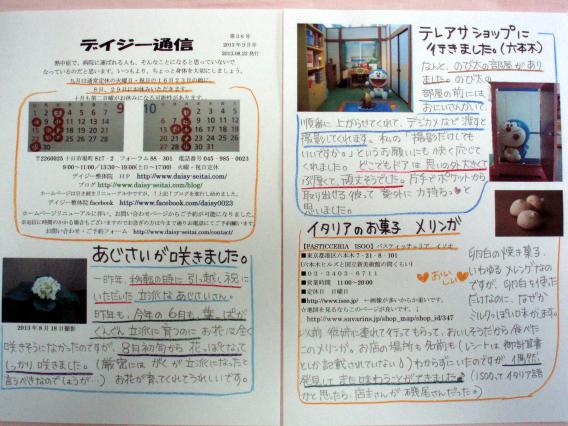 デイジー通信
第36号
2013年9月号
2013.08.22 発行
熱中症で、病院に運ばれる人も、そんなことになると思っていないで
なっているのだと思います。いつもより、ちょっと身体を大切にしましょう。
九月の通常定休の火曜日・祝日の16日23日の他に、
8日、29日にお休みいただきます。
十月も第二日曜がお休みになる可能性があります。
9
10
〒2260025 十日市場町 817-2 フォーラム 88-301 電話番号 045-985-0023
デイジー整体院 HP http://www.daisy-seitai.com/
ブログ http://www.daisy-seitai.com/blog/
デイジー整体院 facebook http://www.facebook.com/daisy0023
ご予約フォーム http://www.daisy-seitai.com/contact/
あじさいが咲きました。
一昨年、移転の時に引っ越し祝に
いただいた立派なあじさいさん。
昨年も、今年の6月も、葉っぱが
ぐんぐん立派に育つのにお花は全く
2013年8月18日撮影
咲きそうになかったのですが、8月初旬から花っぽくなって
しっかり咲きました。(厳密にはがくが立派になったと
言うべきなのでしょうが…) お花が育ってくれてうれしいです。
テレアサショップに
行きました。(六本木)
なんと、のび太の部屋があり
ました。のび太の
部屋の前には、
おにいさんがいて、
順番に上がらせてくれて、デジカメなど渡すと
撮影してくれます。私の「撮影だけでも
いいですか。」というお願いにも快く応じて
くれました。どこでもドアは思いの外大きくて
ぶ厚くて、頑丈そうでした。片手でポケットから
取り出せる彼って案外に力持ち♥と
思いました。
イタリアのお菓子 メリンガ
【PASTICCERIA ISOO】パスティッチェリア・イソオ
■東京都港区六本木 7-21-8-101
(六本木ヒルズと国立新美術館の間くらい)
■03-3403-6711
■営業時間 11:00~20:00
■定休日 日曜日
■http://www.isoo.jp/ ←画像が多いからか重いです。
■地図を見るならこのページが良いです。
http://www.savarina.jp/shop_map/shop_id/347
おいしい
卵白の焼き菓子、
いわゆるメレンゲなの
ですが、卵白も使った
だけなのに、なぜか
ミルクっぽい味がします。
以前 彼氏に連れて行ってもらって、おいしそうだから食べた
このメリンガ。お店の場所も名前も(レシートは御計算書
とか記載されていない!)わからずにいたのですが、偶然
発見してまた味わうことができました。(ISOOってイタリア語
かと思ったら、店主さんが磯尾さんだった。)